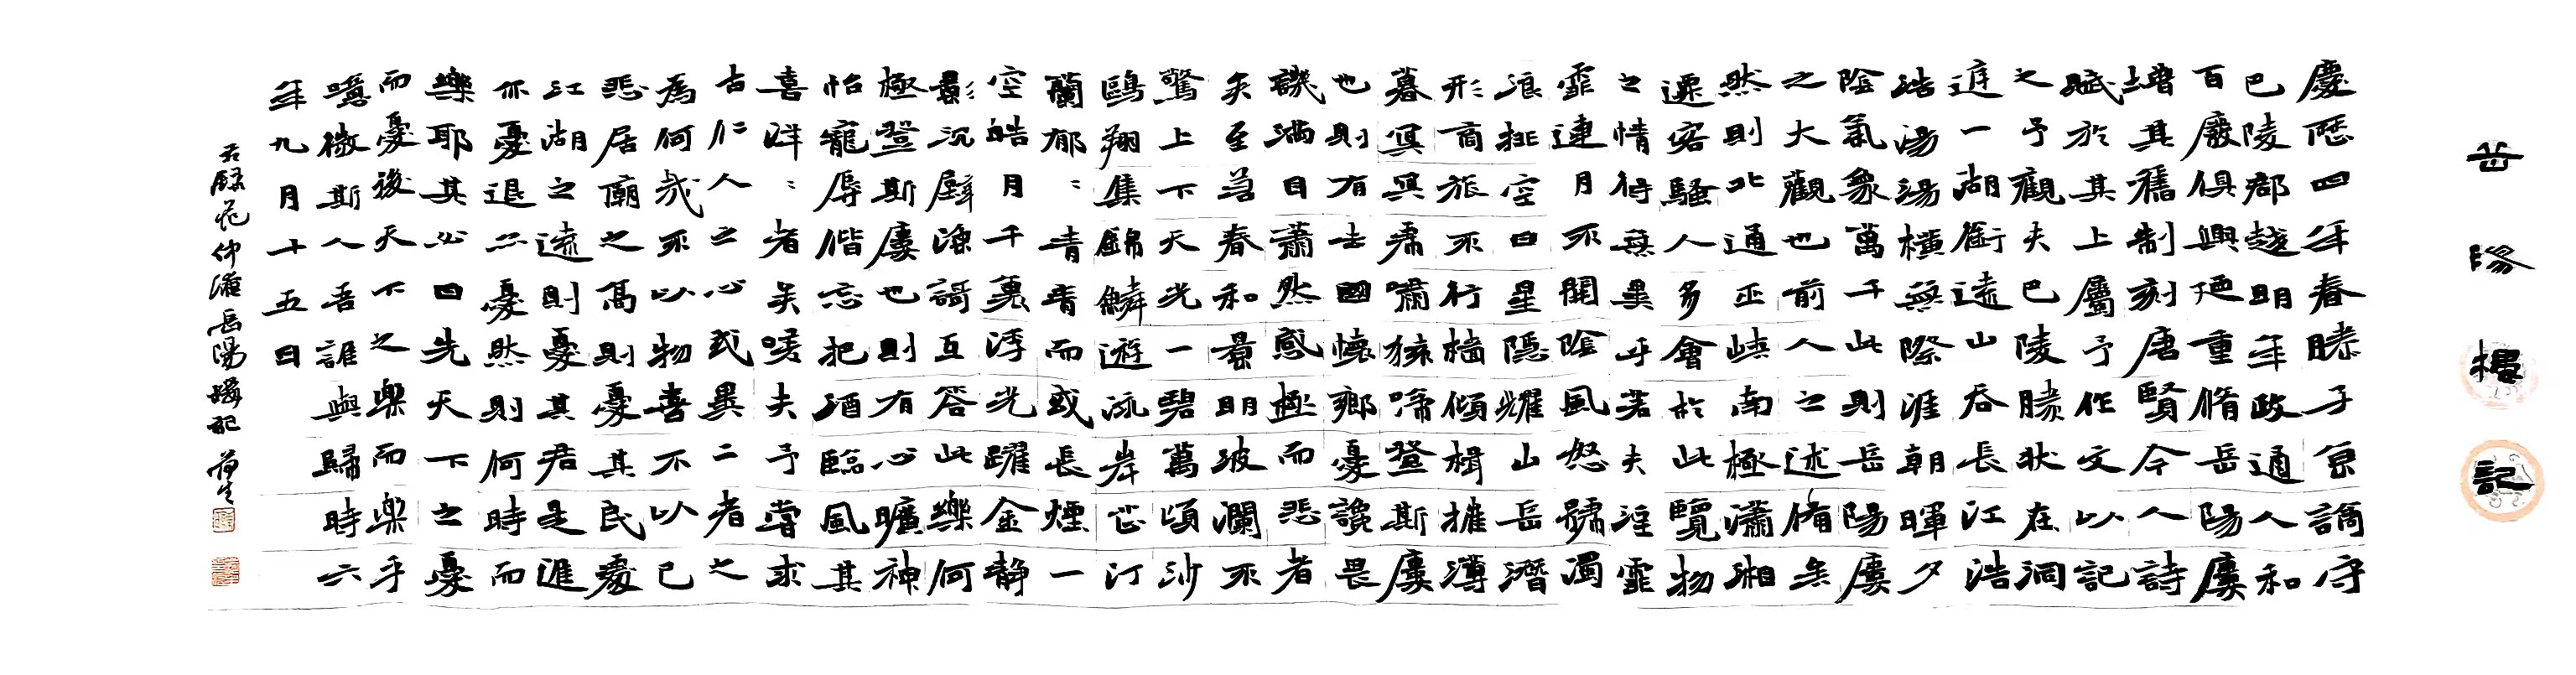 岳陽樓記
慶歷四年春滕子京謫守
巴陵郡越明年政通人和
百廢俱興廼重脩岳陽樓
增其舊制刻唐賢今人詩
賦於其上屬予作文以記
之予觀夫巴陵勝狀在洞
庭一湖銜遠山吞長江浩
浩湯湯橫無際涯朝暉夕
陰氣象萬千此則岳陽樓
之大觀也前人之述備矣
然則北通巫峽南極瀟湘
遷客騷人多會於此覽物
之情得無異乎若夫淫霏
霏連月不開陰風怒號濁
浪排空日星隱耀山岳潛
形商旅不行檣傾楫摧薄
暮冥冥虎嘯猿啼登斯樓
也則有去國懷鄉憂讒畏
譏滿目蕭然感極而悲者
矣至若春和景明波瀾不
驚上下天光一碧萬頃沙
鷗翔集錦鱗遊泳岸芷汀
蘭郁〻青青而或長煙一
空皓月千裏浮光躍金靜
影沉璧漁謌互答此樂何
極登斯樓也則有心曠神
怡寵辱偕忘把酒臨風其
喜洋〻者矣嗟夫予嘗求
古仁人之心或異二者之
為何哉不以物喜不以己
悲居廟之高則憂其民處
江湖之遠則憂其君是進
亦憂退亦憂然則何時而
樂耶其必曰先天下之憂
而憂後天下之樂而樂乎
噫微斯人吾誰與歸時六
年九月十五日
右錄范仲淹岳陽樓記